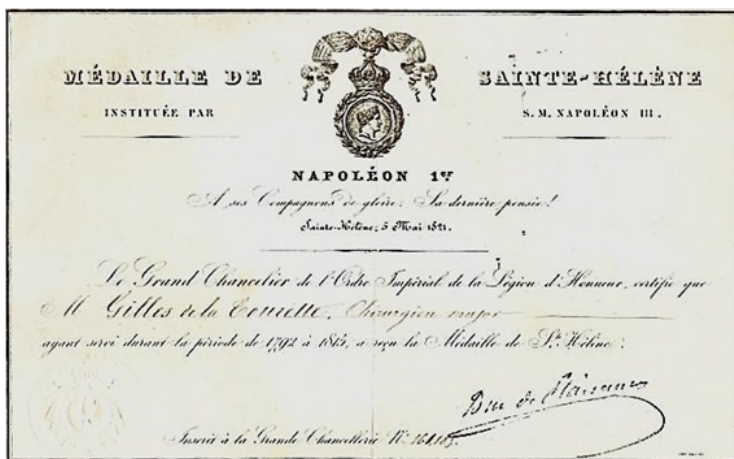 MÉDAILLE DE SAINTE-HÉLÈNE
INSTITUÉE PAR S. M. NAPOLÉON III.
NAPOLÉON 1er
A ses Compagnons de gloire, Sa dernière pensée!
Sainte-Hélène, 5 Mai 1821.
Le Grand Chancelier de l'Ordre Impérial de la Légion d'Honneur, certifie que
M Gilles de la Tourette, Chirurgien major
ayant servi durant la période de 1792 à 1815, a reçu la Médaille de Ste Hélène.
Duc de Plaisance
Inscrit à la Grande Chancellerie No